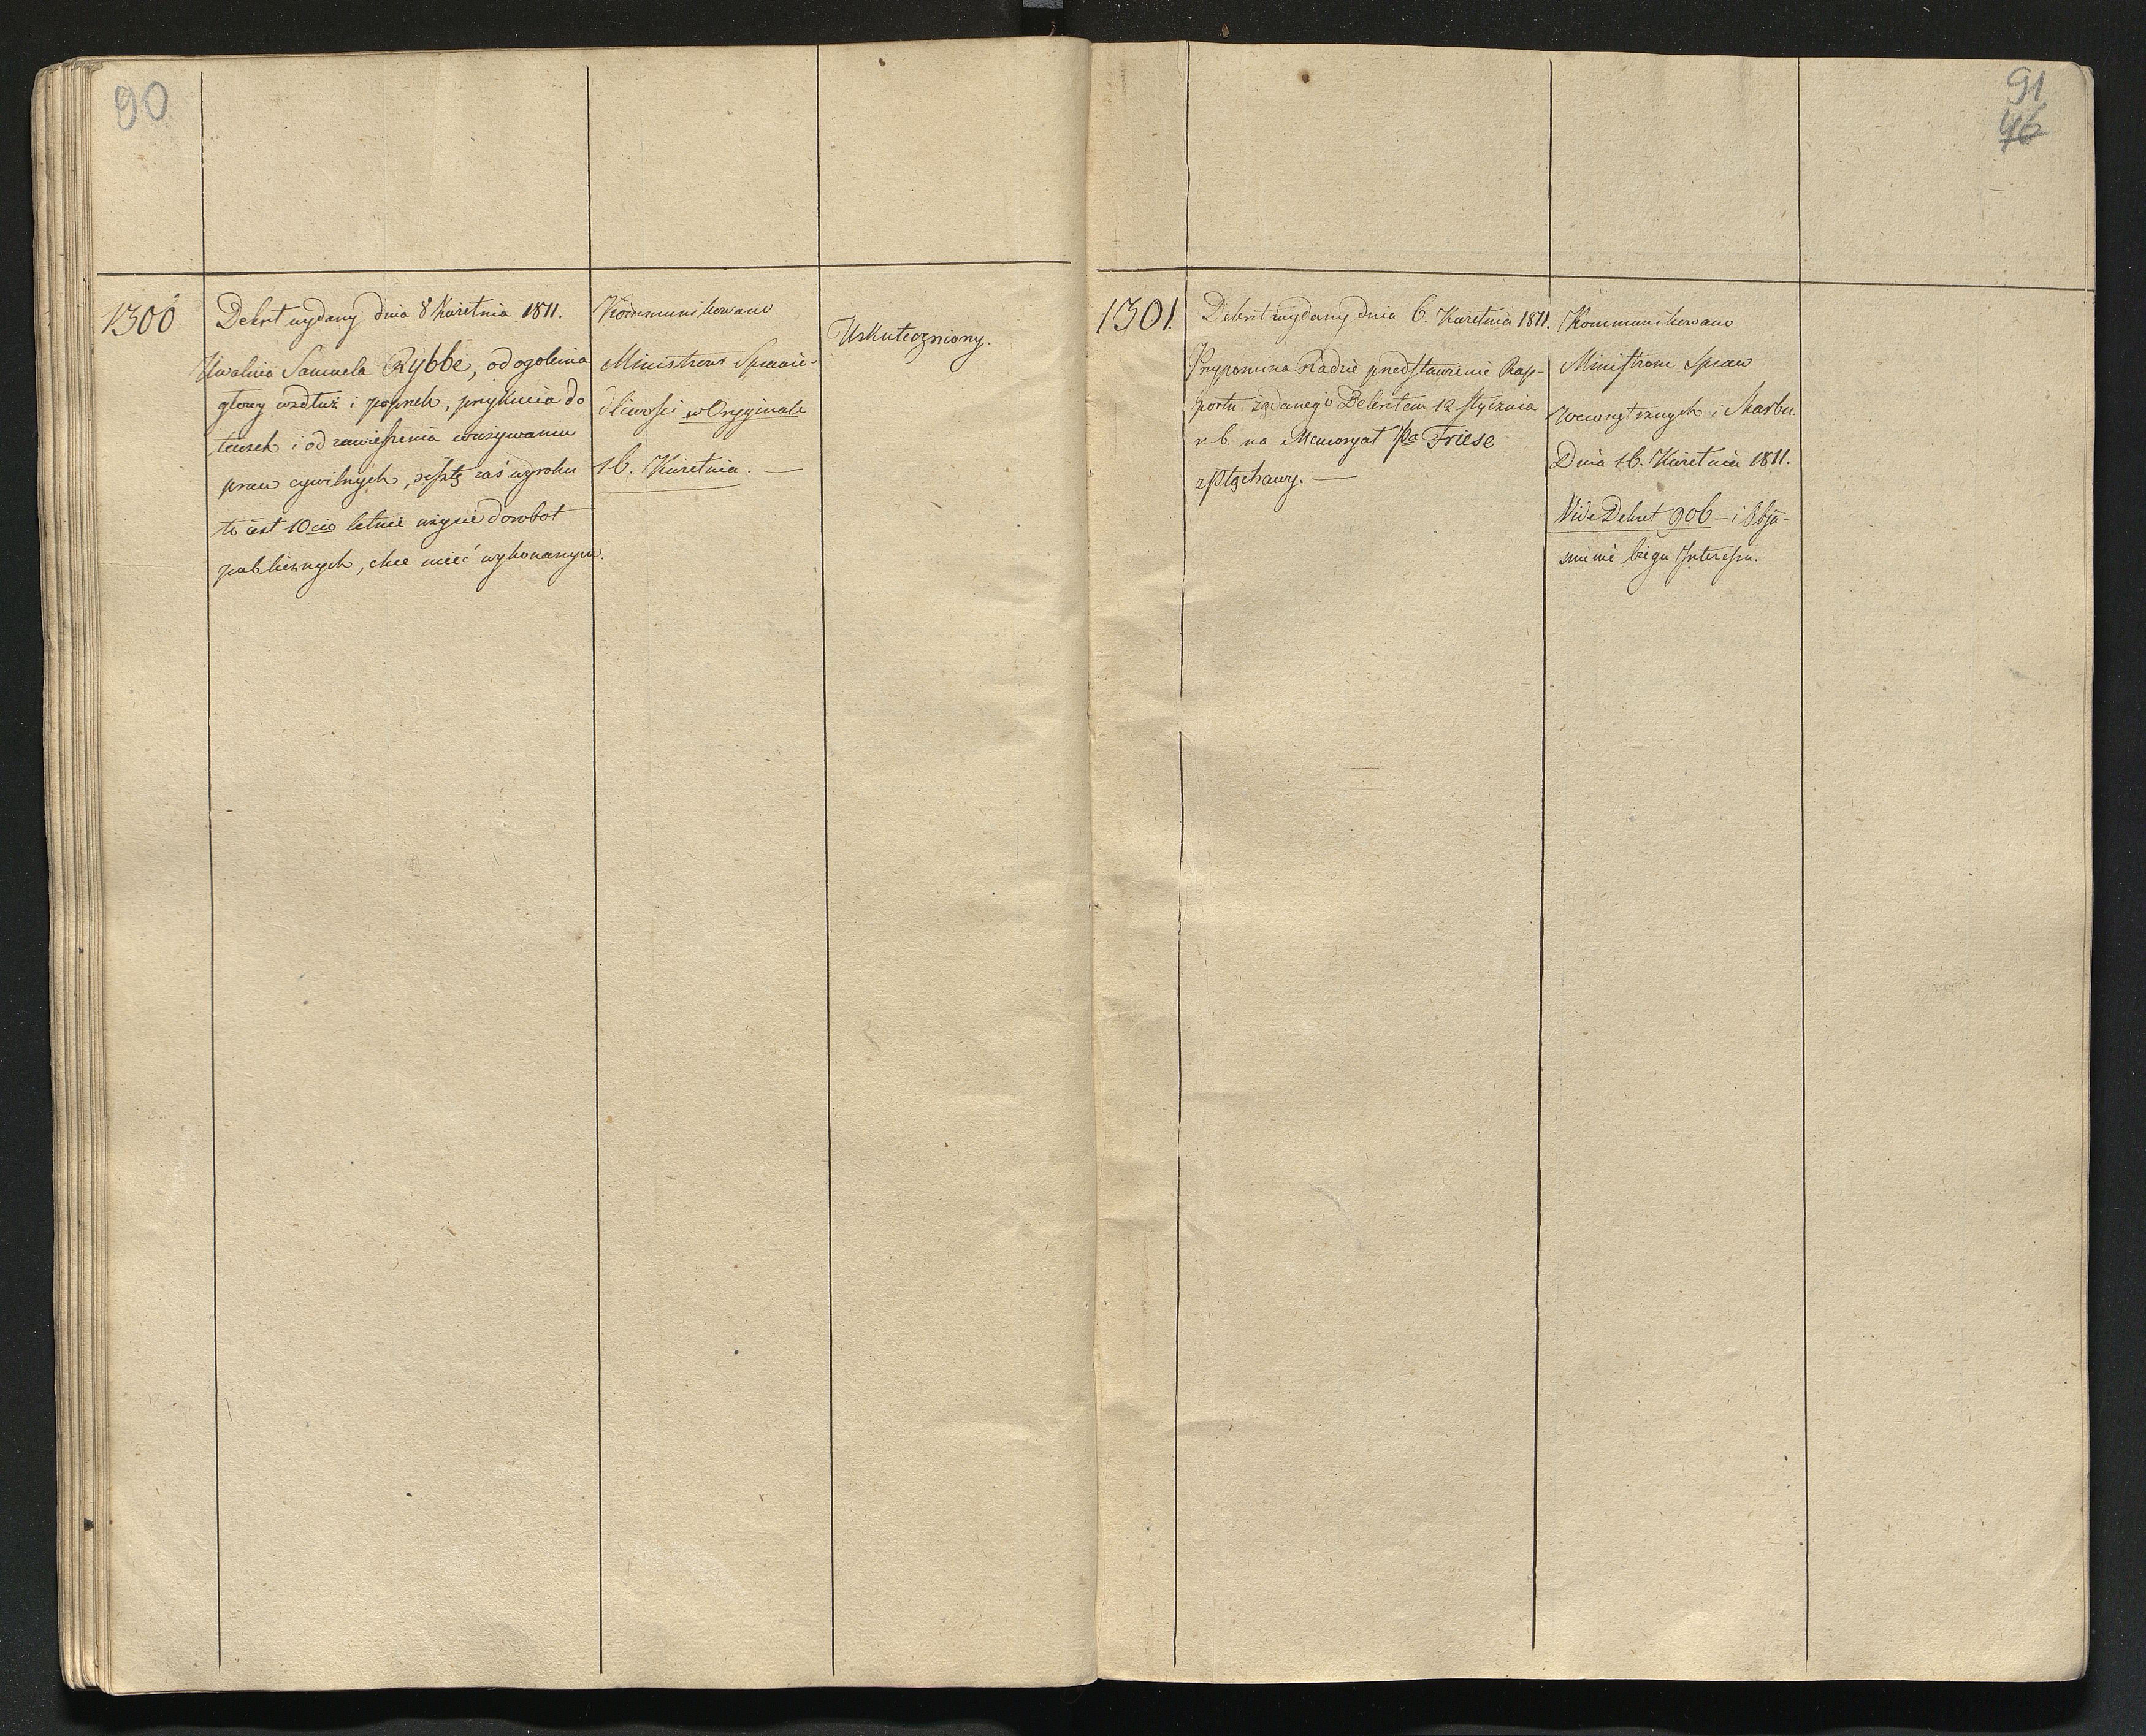 90
1300
Dekret wydany dnia 8 Kwietnia 1811.
Uwalnia Samuela Rybbe, od ogolenia
głowy wzdłuż i poprzek, przykucia do
taczek i od zawieszenia w używaniu
praw cywilnych, resztę zaś wyroku
to iest 10cio letnie użycie do robot
publicznych, chce mieć wykonanym.
Kommunikowano
Ministrowi Sprawie-
dliwości w Oryginale
16. Kwietnia. —
Uskuteczniony.
91
46
1301.
Dekret wydany dnia 6. Kwietnia 1811.
Przypomina Radzie przedstawienie Rap-
portu żądanego Dekretem 12 stycznia
r. b. na Memoryał Pa Friese
z Ptychawy. —
Kommunikowano
Ministrom Spraw
Wewnętrznych i Skarbu.
Dnia 16. Kwietnia 1811.
Vide Dekret 906 — i Obja-
śnienie biegu Interessu.